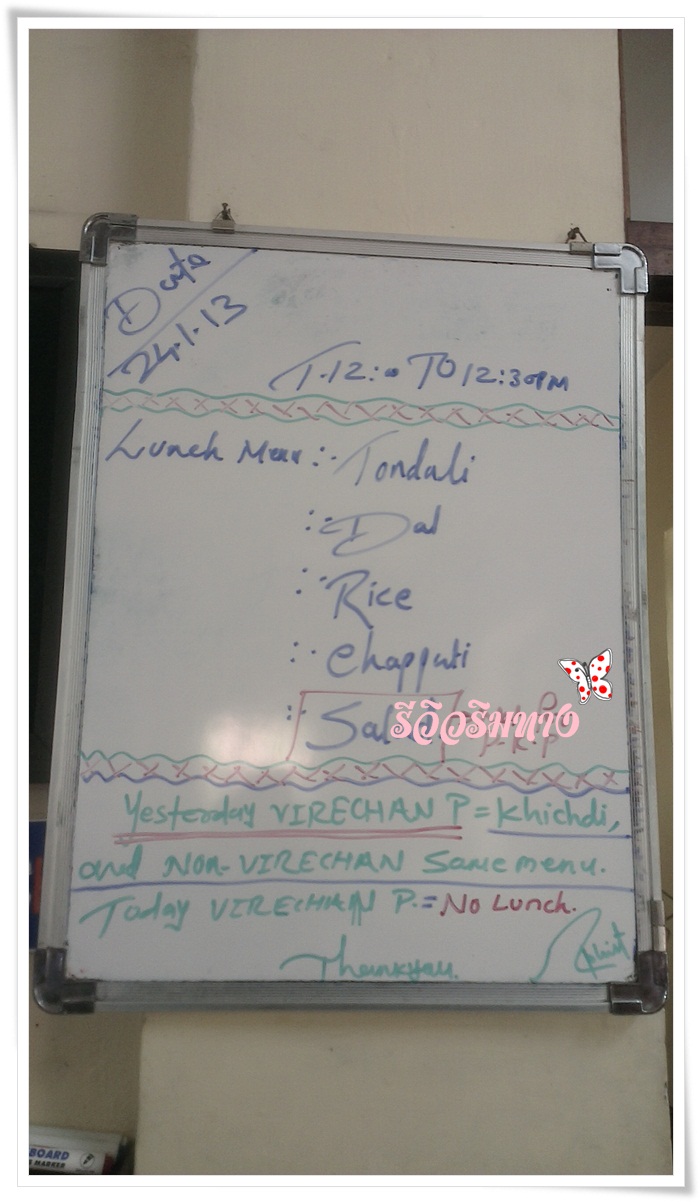 Date
24.1.13
T.12:00 TO 12:30PM
Lunch Menu :- Tondali
:- Dal
:- Rice
:- Chappati
:- Sal
รีวิวริมทาง
Yesterday VIRECHAN P = Khichdi,
and NON-VIRECHAN Same menu.
Today VIRECHAN P. = No Lunch.
Thankyou.
BOARD
MARKER